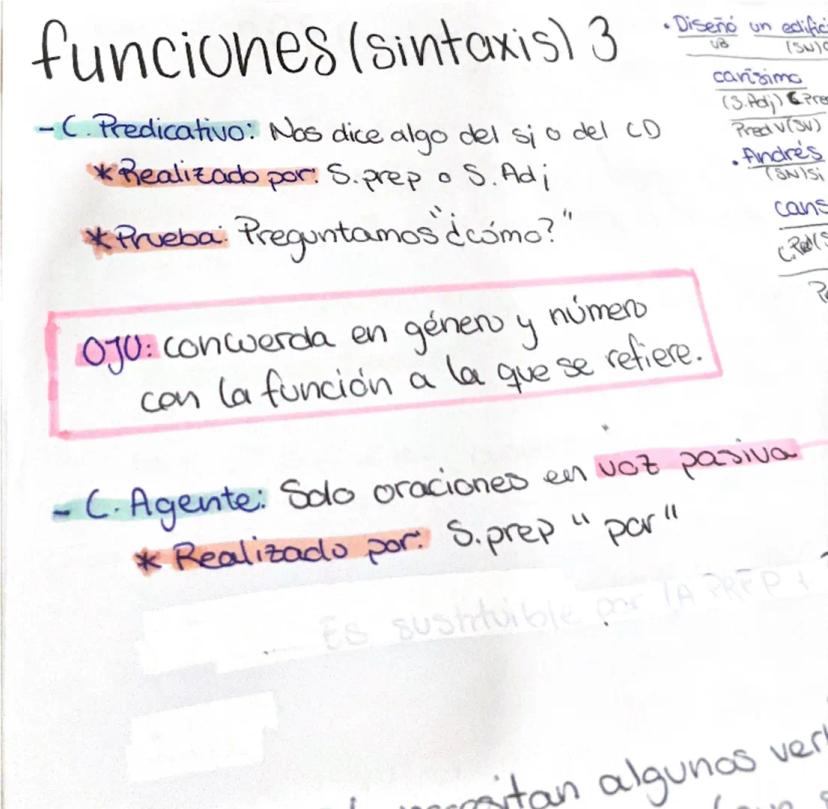 funciones (sintaxis) 3
- C. Predicativo: Nos dice algo del sj o del CD
* Realizado por: S.prep o S.Adj
* Prueba: Preguntamos "¿cómo?"
OJO: concuerda en género y número
con la función a la que se refiere.
- C. Agente: Solo oraciones en voz pasiva
* Realizado por: S.prep "por"
ES sustituible por LA PREP
algunos
• Diseñó un edific
carísimo
(S.Adj)
Pred V(SV)
• Andrés
(SN)Sj
cans